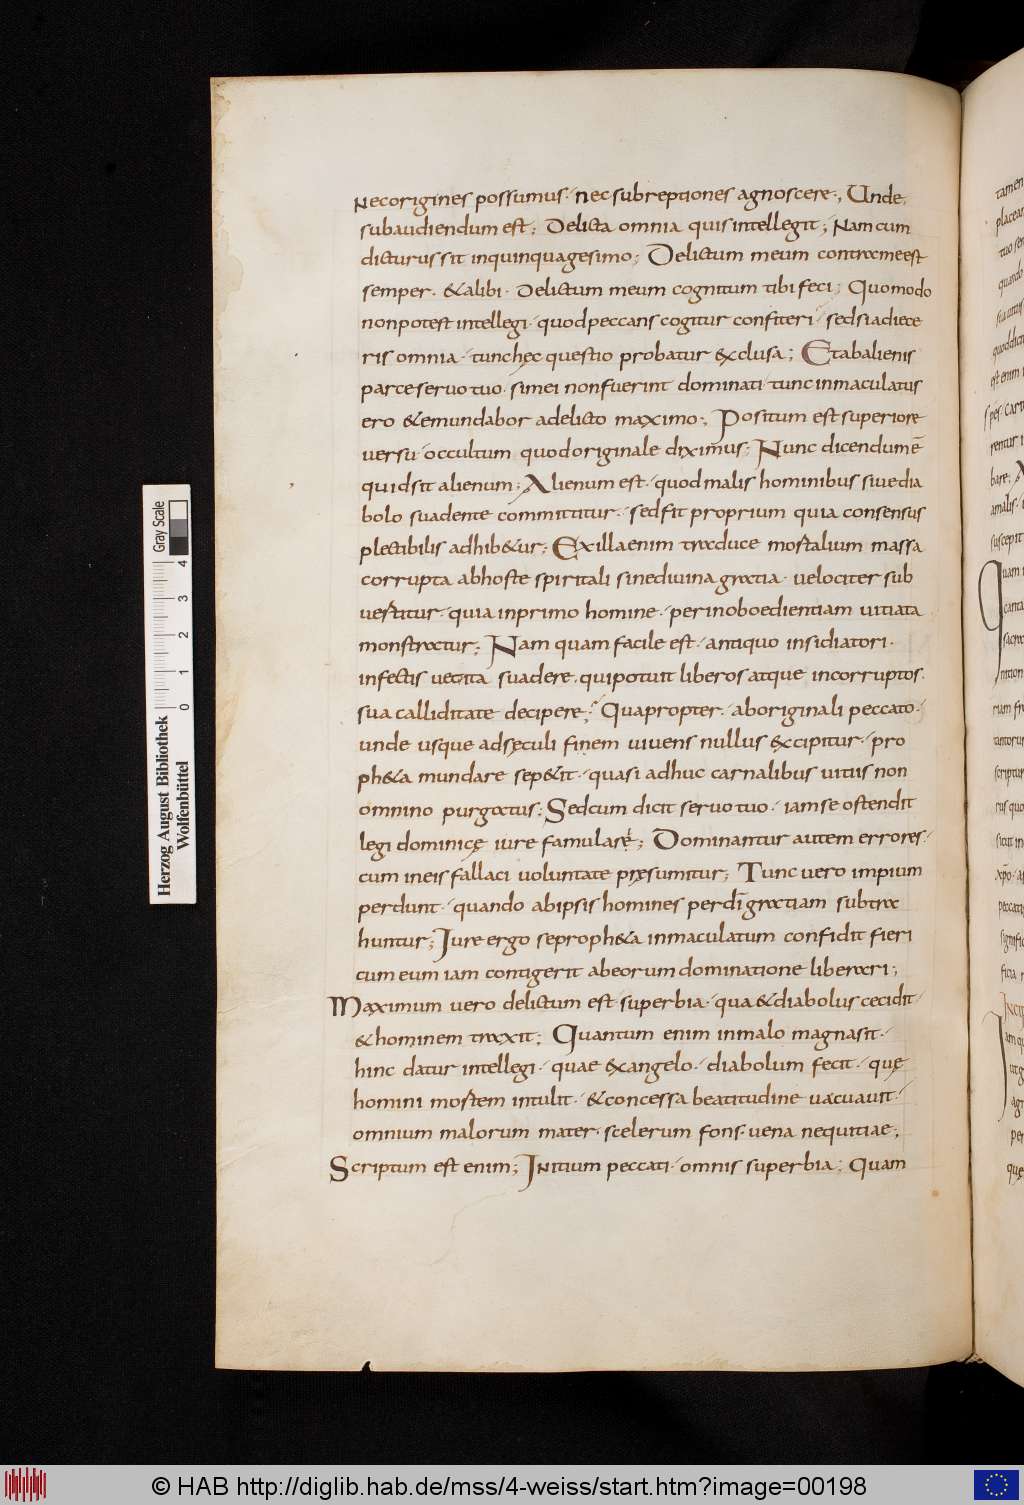 necorigines possumus· nec subreptiones agnoscere·, Unde,
subaudiendum est; Delicta omnia quis intellegit; Nam cum
dicturus sit inquinquagesimo; Delictum meum contra me est
semper· &alibi· Delictum meum cognitum tibi feci; Quomodo
non potest intellegi· quod peccans cogitur confiteri· sed si adiece
ris omnia· tunc hęc questio probatur exclusa; Et ab alienis
parce servo tuo· si mei non fuerint dominati· tunc inmaculatus
ero &emundabor adelicto maximo·, Positum est superiore
versu· occultum quod originale diximus; Nunc dicendum ē
quid sit alienum; Alienum est· quod malis hominibus sive dia
bolo suadente committitur· sed fit proprium quia consensus
plectibilis adhib&ur; Ex illa enim traduce mortalium massa
corrupta ab hoste spiritali sine divina gratia· velociter sub
vertitur· quia in primo homine· per inoboedientiam vitiata
monstratur; Nam quam facile est· antiquo insidiatori·
infectis vetita suadere· qui potuit liberos atque incorruptos·
sua calliditate decipere; Quapropter· ab originali peccato·
unde usque ad sęculi finem vivens nullus excipitur· pro
ph&a mundare sep&it· quasi adhuc carnalibus vitiis non
omnino purgatus; Sed cum dicit servo tuo· iam se ostendit
legi dominicę iure famulare; Dominantur autem errores·
cum in eis fallaci voluntate pręsumitur; Tunc vero impium
perdunt· quando ab ipsis homines per dī gratiam subtra
huntur; Iure ergo se proph&a inmaculatum confidit fieri
cum eum iam contigerit ab eorum dominatione liberari;
Maximum vero delictum est superbia· qua &diabolus cecidit·
&hominem traxit; Quantum enim in malo magna sit·
hinc datur intellegi· quae ex angelo· diabolum fecit· quę
homini mortem intulit· &concessa beatitudine vacuavit·
omnium malorum mater· scelerum fons· vena nequitiae;
Scriptum est enim; Initium peccati· omnis superbia; Quam
Herzog August Bibliothek
Wolfenbüttel
0 1 2 3 4
Gray Scale
© HAB http://diglib.hab.de/mss/4-weiss/start.htm?image=00198